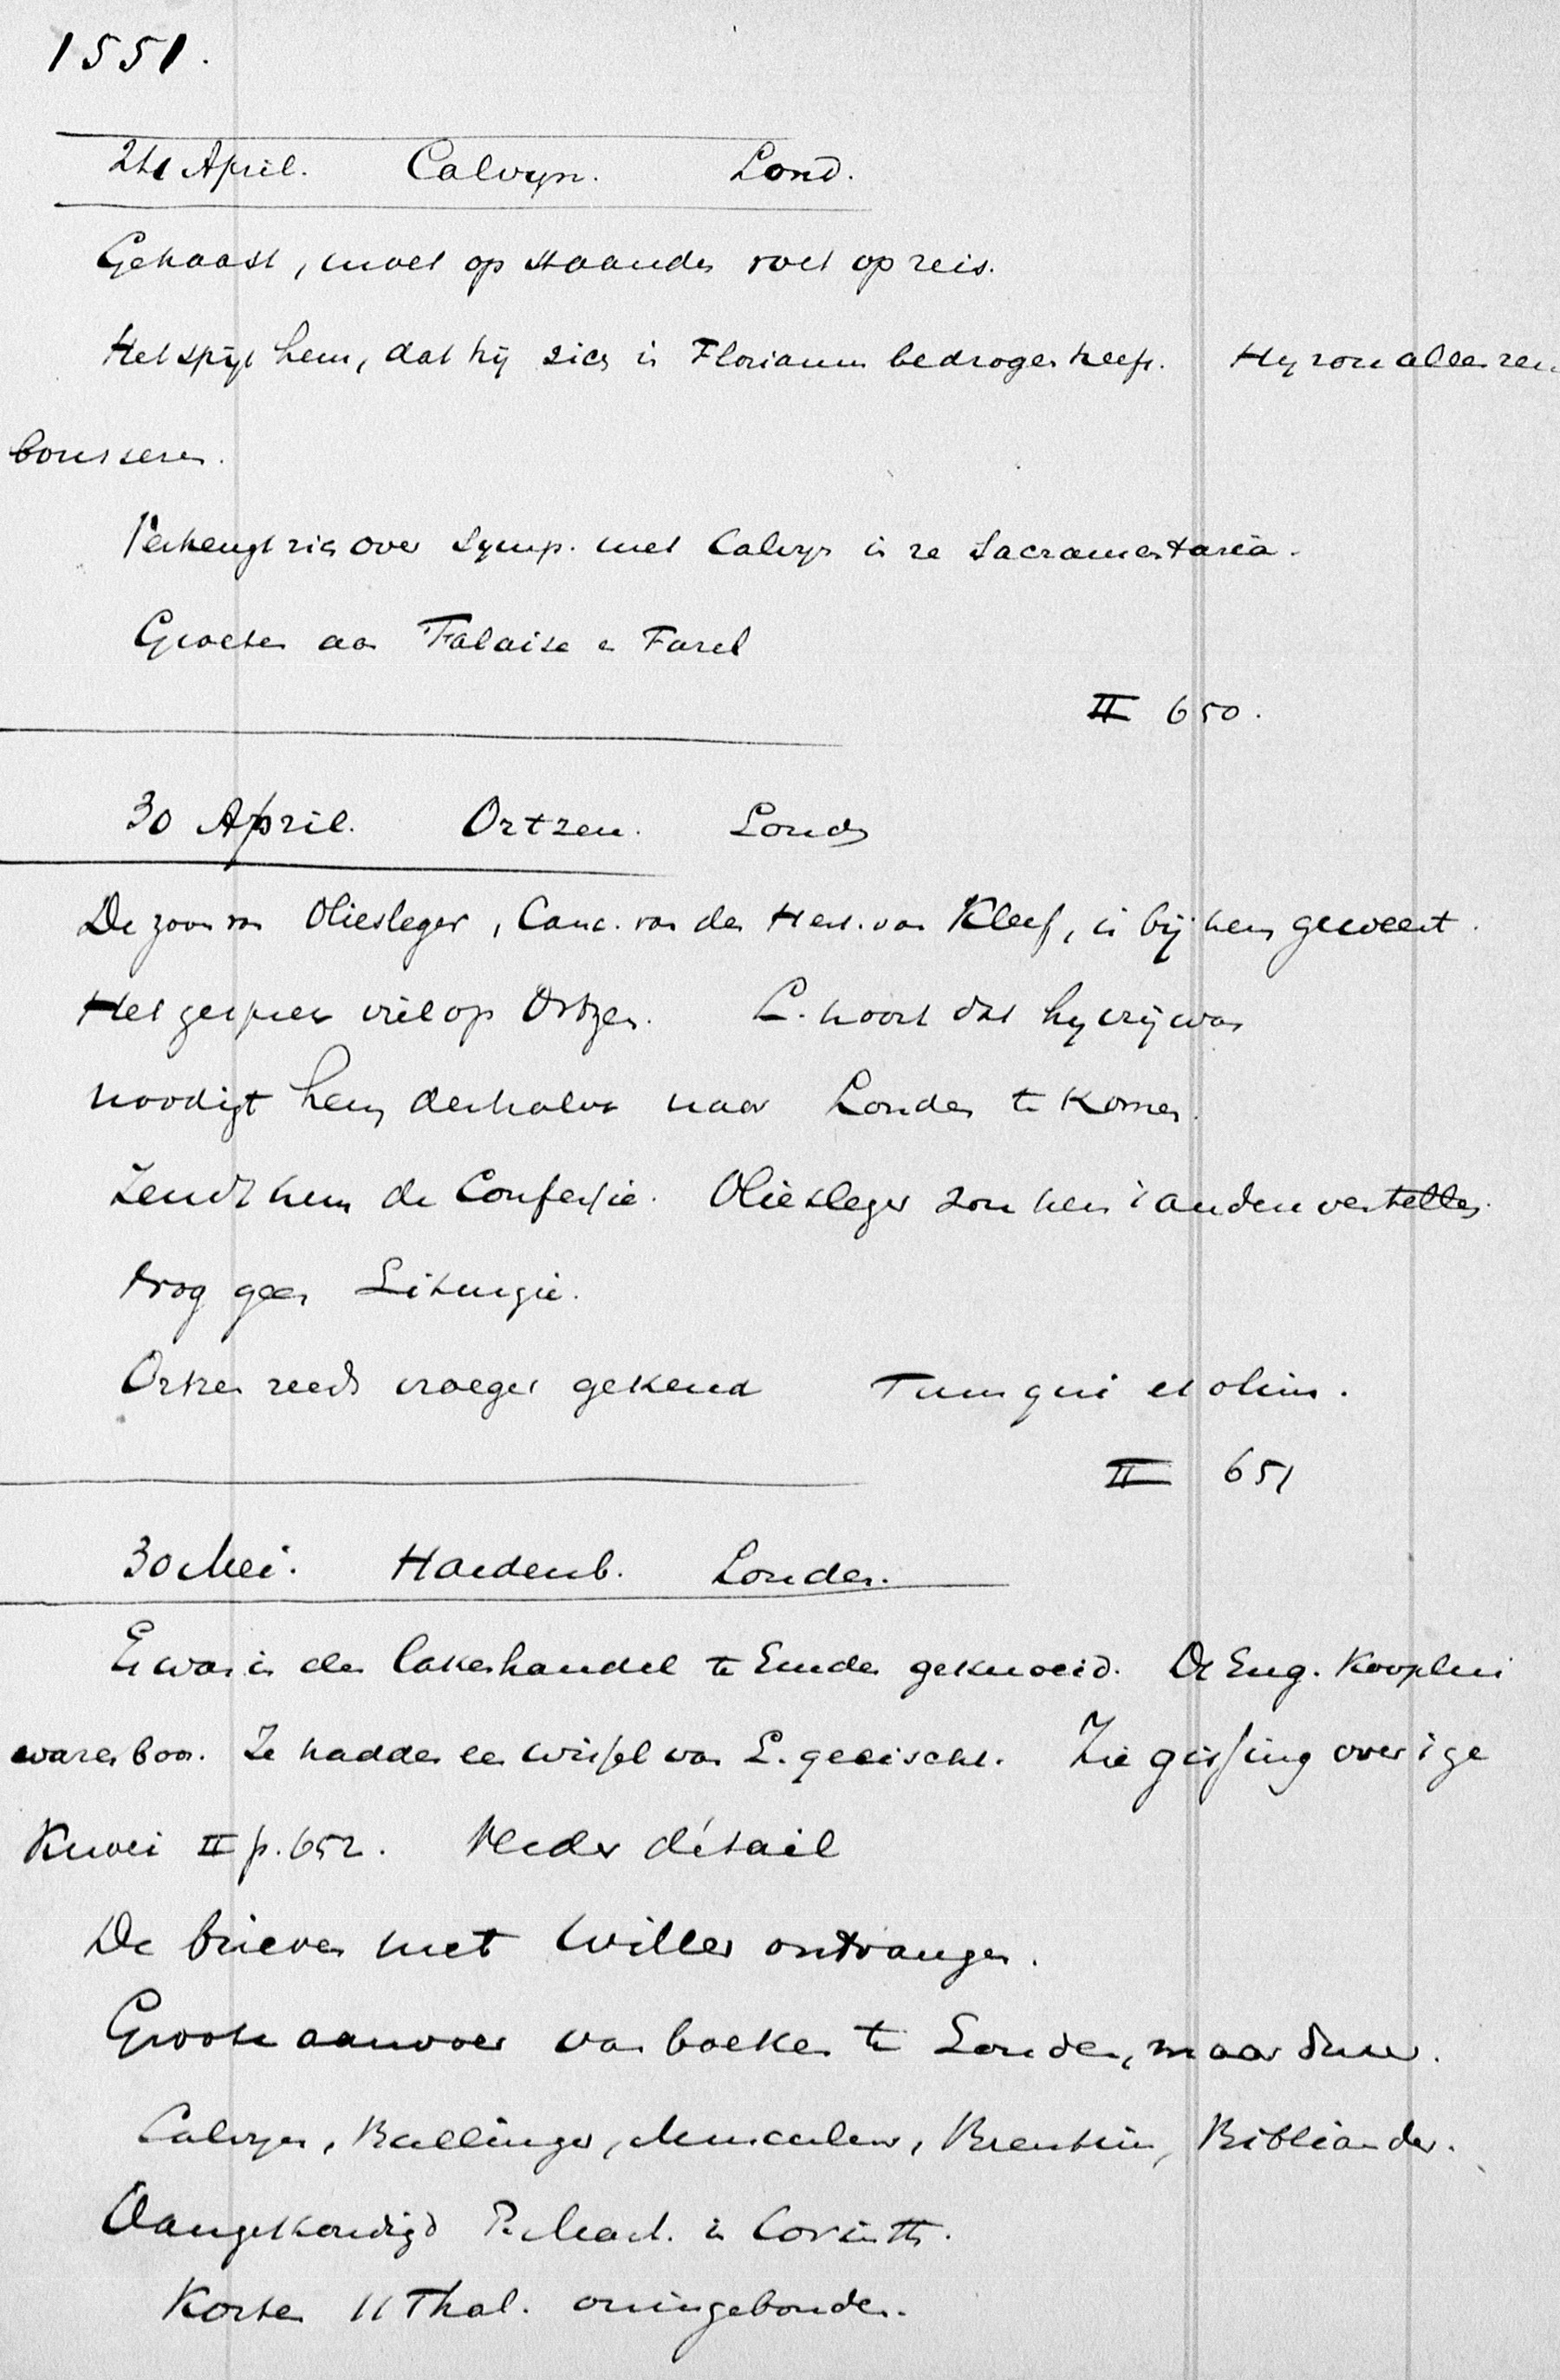 1551.
24 April. Calvyn. Lond.
Gehaast, moet op staanden voet op reis.
Het spijt hem, dat hij zich in Florianus bedrogen heeft. Hij zou alles rem
bourseren.
Verheugt zich over symp. met Calvyn in re Sacramentaria.
Groeten aan Falaise en Farel
II 650.
30 April. Ortzen. Lond
De zoon van Oliesleger, Canc. van den Hert. van Kleef, is bij hem geweest.
Het gesprek viel op Ortzen. L. hoort dat hij vrij was
noodigt hem derhalve naar Londen te komen.
Zendt hem de Confessie. Oliesleger zou hem 't andere vertellen.
Nog geen Liturgie.
Ortzen reeds vroeger gekend Tum qui et olim.
II 651
30 Mei. Hardenb. Londen.
Er was in den lakenhandel te Emden geknoeid. De Eng. Kooplui
waren boos. Ze hadden een wissel van L. geëischt. Zie gissing over 't ge
Knoei II p. 652. détail
De brieven met Willes ontvangen.
Groote aanvoer van boeken te Londen, maar duur.
Calvyn, Bullinger, Musculus, Brentius, Bibliander.
Aangekondigd P. Mart. in Corinth.
Kosten 11 Thal. oningebonden.